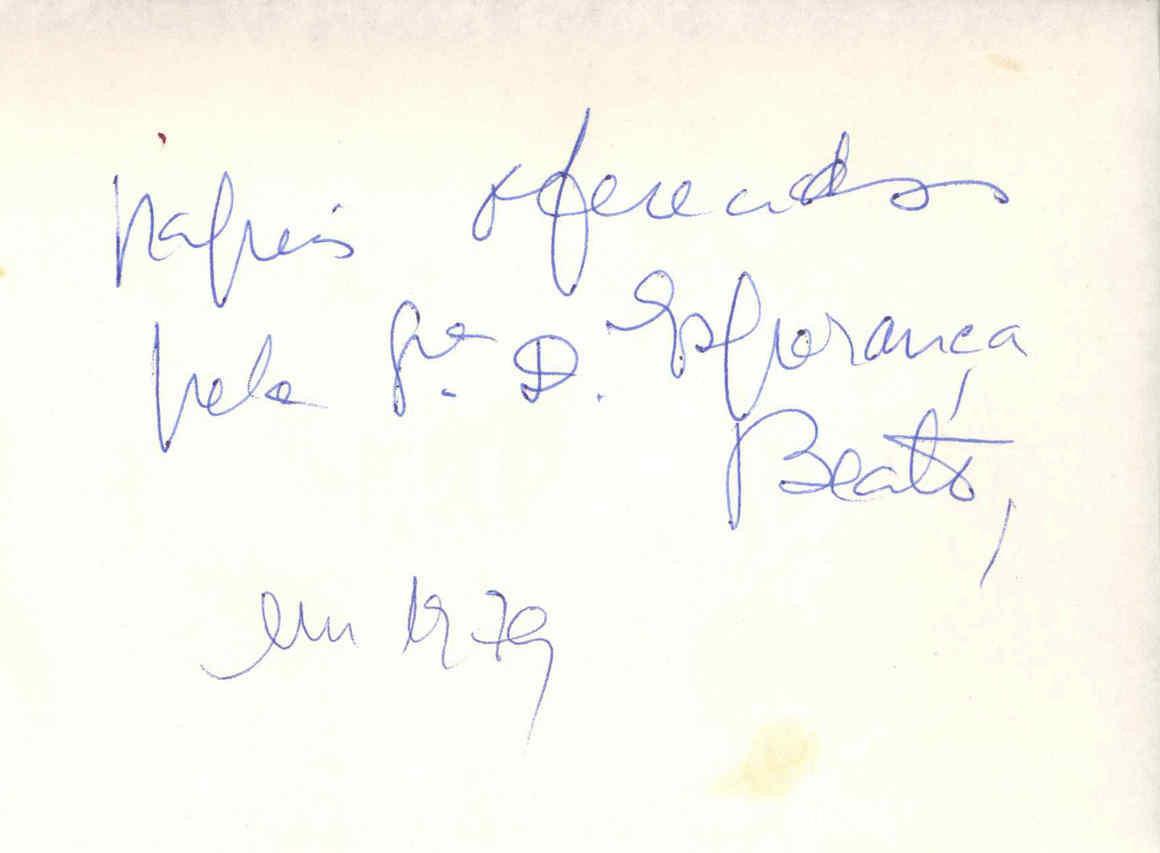 papeis oferecidos
pela Sra. D. Esperança
Beató,
em 1979